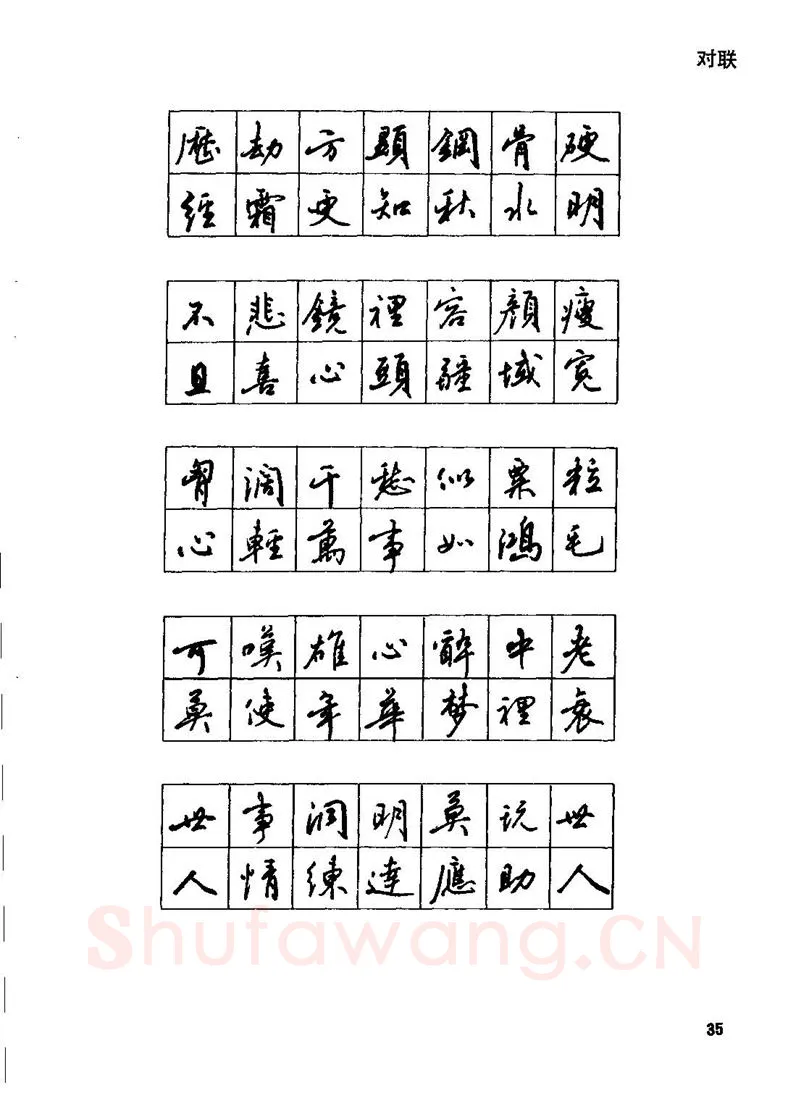 对联
歷劫方顯鋼骨硬
經霜更知秋水明
不悲鏡裡容顏瘦
且喜心頭疆域宽
胸闊千愁似粟粒
心輕萬事如鴻毛
可嘆雄心醉中老
莫使年華梦裡衰
世事洞明莫玩世
人情練達應助人
Shufawang.CN
35